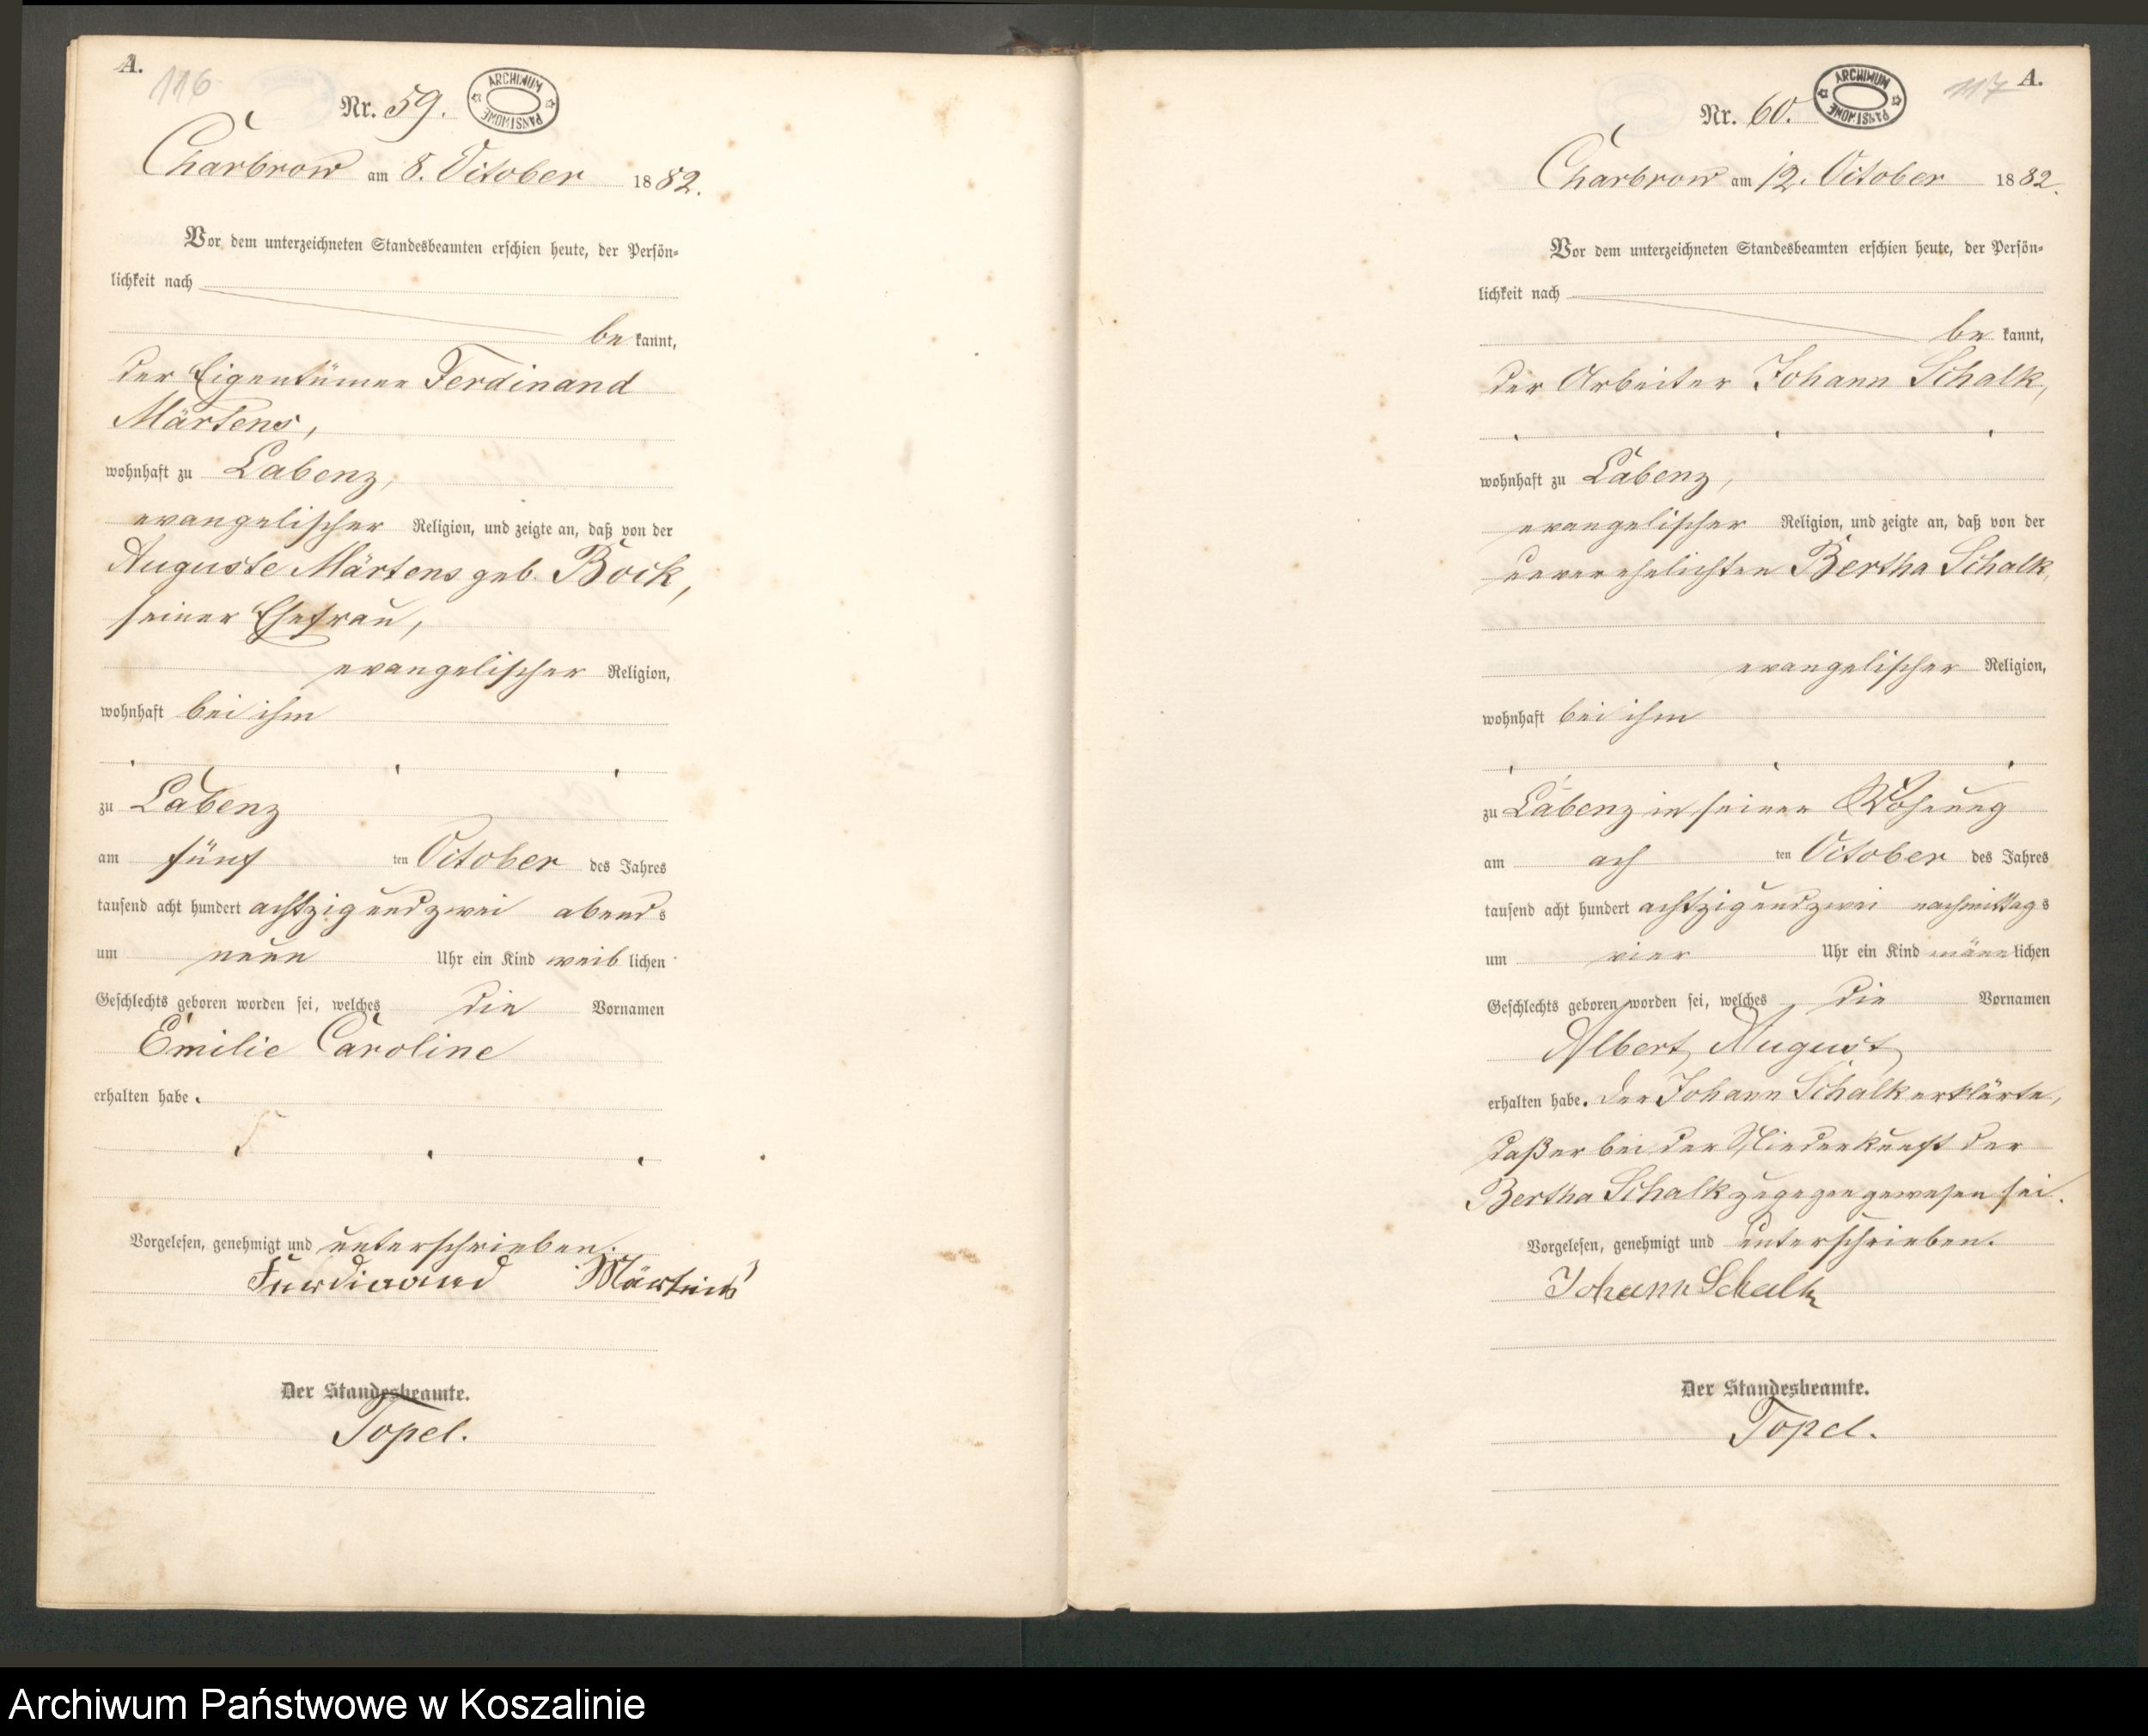 A.
116
Nr. 59.
ARCHIWUM PAŃSTWOWE
Charbrow am 8. October 1882.
Vor dem unterzeichneten Standesbeamten erschien heute, der Persön-
lichkeit nach
be kannt,
der Eigentümer Ferdinand
Märtens,
wohnhaft zu Labenz,
evangelischer Religion, und zeigte an, daß von der
Auguste Märtens geb. Bock,
seiner Ehefrau,
evangelischer Religion,
wohnhaft bei ihm
zu Labenz
am fünf ten October des Jahres
tausend acht hundert achtzig und zwei abends
um neun Uhr ein Kind weiblichen
Geschlechts geboren worden sei, welches die Vornamen
Emilie Caroline
erhalten habe.
Vorgelesen, genehmigt und unterschrieben.
Ferdinand Märtens
Der Standesbeamte.
Topel.
117 A.
Nr. 60.
ARCHIWUM PAŃSTWOWE
Charbrow am 12. October 1882.
Vor dem unterzeichneten Standesbeamten erschien heute, der Persön-
lichkeit nach
be kannt,
der Arbeiter Johann Schalk,
wohnhaft zu Labenz,
evangelischer Religion, und zeigte an, daß von der
unverehelichten Bertha Schalk,
evangelischer Religion,
wohnhaft bei ihm
zu Labenz in seiner Wohnung
am ach ten October des Jahres
tausend acht hundert achtzig und zwei nachmittags
um vier Uhr ein Kind männlichen
Geschlechts geboren worden sei, welches die Vornamen
Albert August
erhalten habe. Der Johann Schalk erklärte,
daß er bei der Niederkunft der
Bertha Schalk zugegen gewesen sei.
Vorgelesen, genehmigt und unterschrieben.
Johann Schalk
Der Standesbeamte.
Topel.
Archiwum Państwowe w Koszalinie